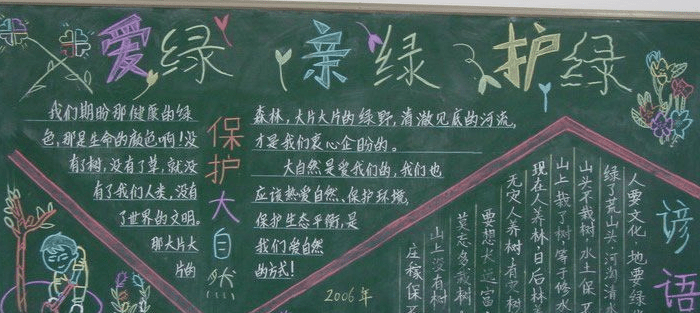 爱绿 亲绿 护绿
我们期盼那健康的绿
色,那是生命的颜色啊!没
有了树,没有了草,就没
有了我们人类,没有
了世界的文明。
那大片大
片的
保护大自然
森林,大片大片的绿野,清澈见底的河流,
才是我们衷心企盼的。
大自然是爱我们的,我们也
应该热爱自然、保护环境,
保护生态平衡,是
我们爱自然
的方式!
2006年
谚语
人要文化,地要绿
绿了荒山头,河沟清
山头不栽树,水土保不
山上栽了树,等于修水
现在人养林,日后林养
无灾人养树,有灾树
要想大远富
莫忘多栽树
山上没有树
庄稼保不